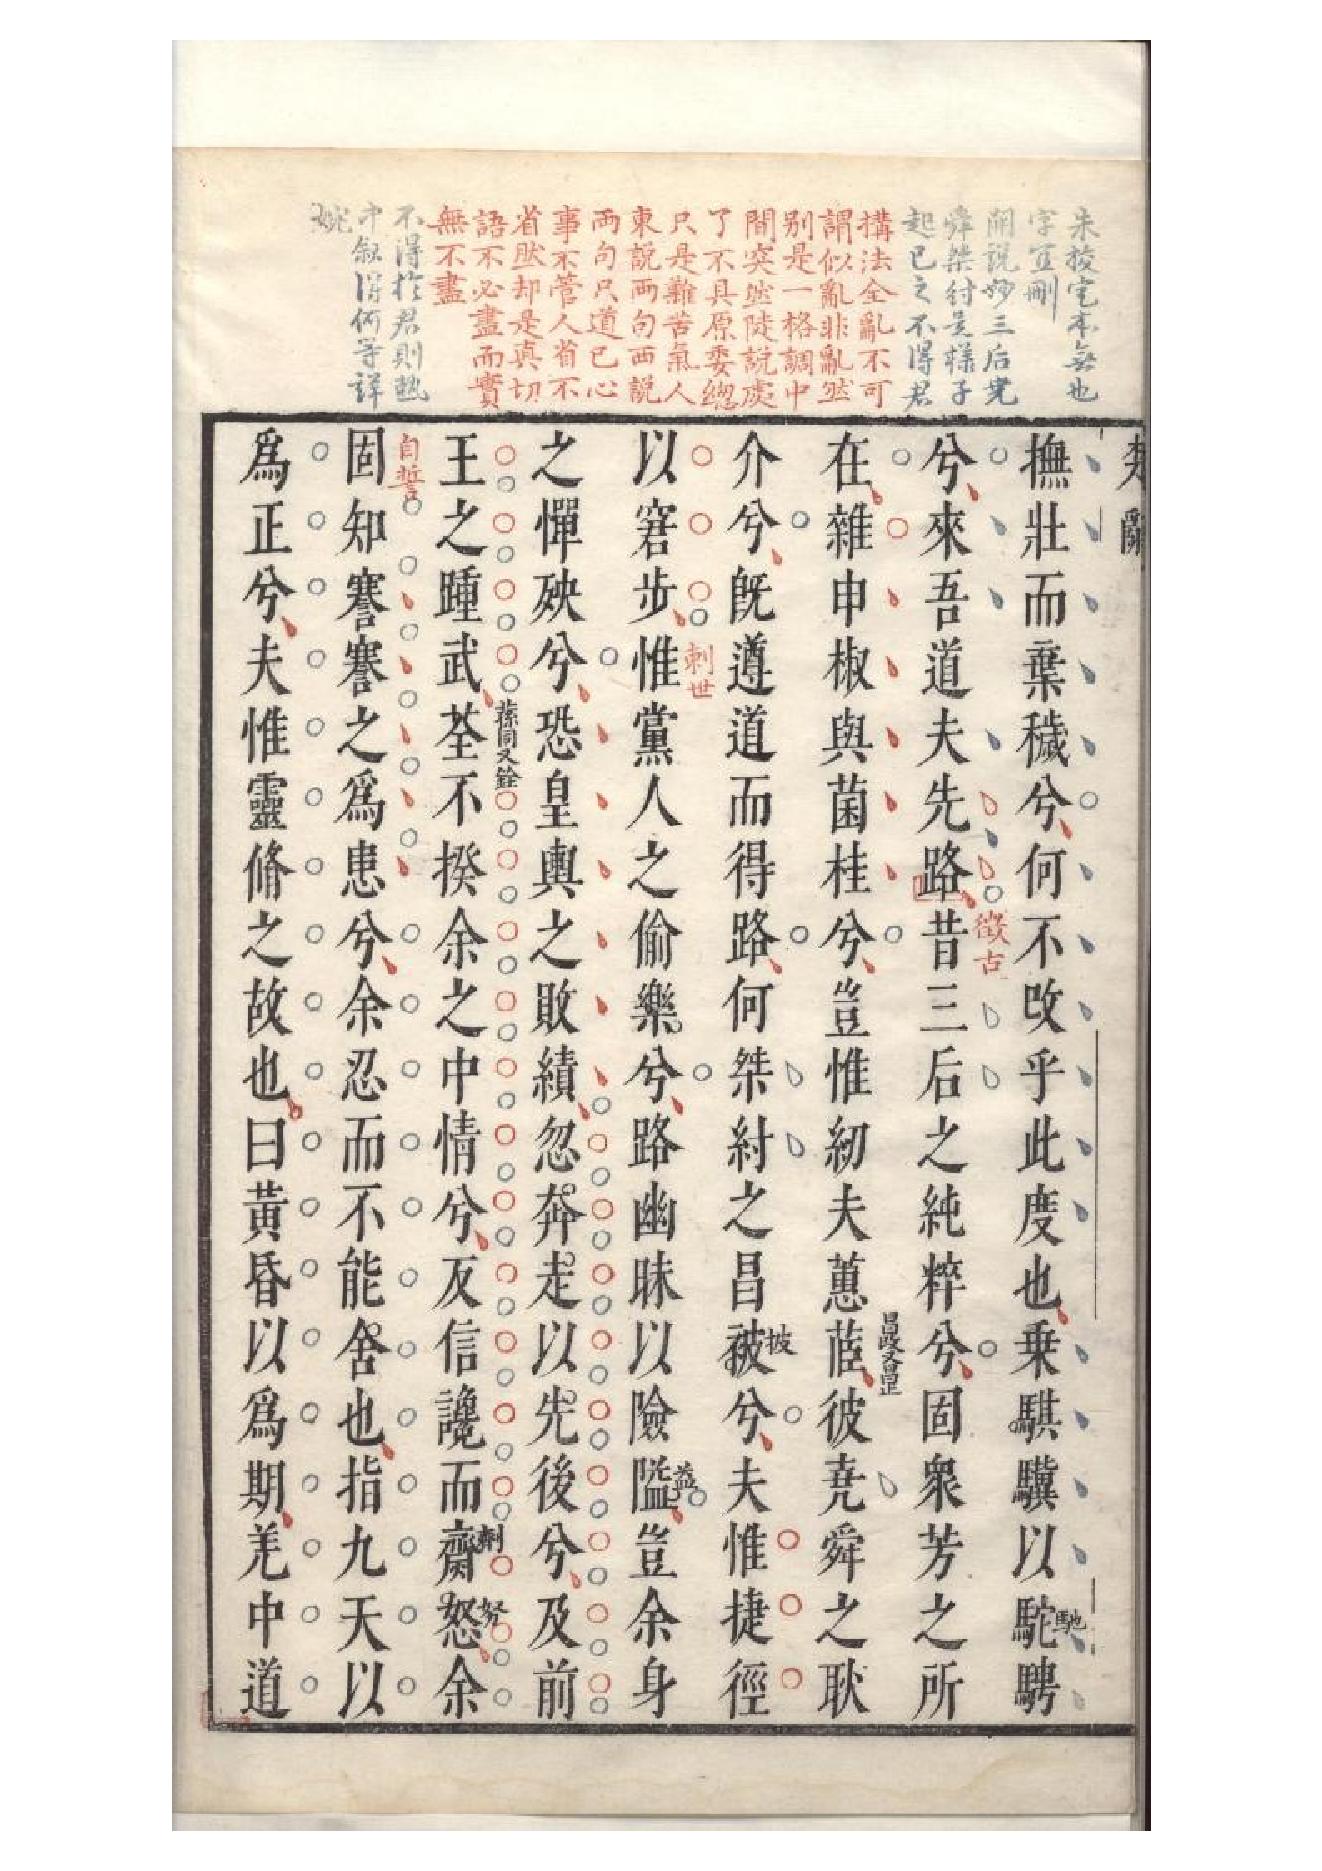 朱挍定本無也
字宜刪
開說妙三后堯
舜桀紂是樣子
起已之不得君
搆法全亂不可
謂似亂非亂然
别是一格調中
間突然陡說處
了不具原委總
只是難苦氣人
東說兩句西說
兩句只道已心
事不管人省不
省然却是真切
語不必盡而實
無不盡
不得於君則熱
中叙得何等詳
婉
撫壯而棄穢兮何不改乎此度也乗騏驥以駝騁
馳
兮來吾道夫先路昔三后之純粹兮固衆芳之所
徵古
在雜申椒與菌桂兮豈惟紉夫蕙茝彼堯舜之耿
昌改又昌正
介兮旣遵道而得路何桀紂之昌被兮夫惟捷徑
披
以窘步惟黨人之偷樂兮路幽昧以險隘豈余身
刺世
益
之憚殃兮恐皇輿之敗績忽奔走以先後兮及前
王之踵武荃不揆余之中情兮反信讒而齌怒余
蓀同又銓
劑
努
固知謇謇之爲患兮余忍而不能舍也指九天以
自誓
爲正兮夫惟靈脩之故也曰黃昏以爲期羌中道